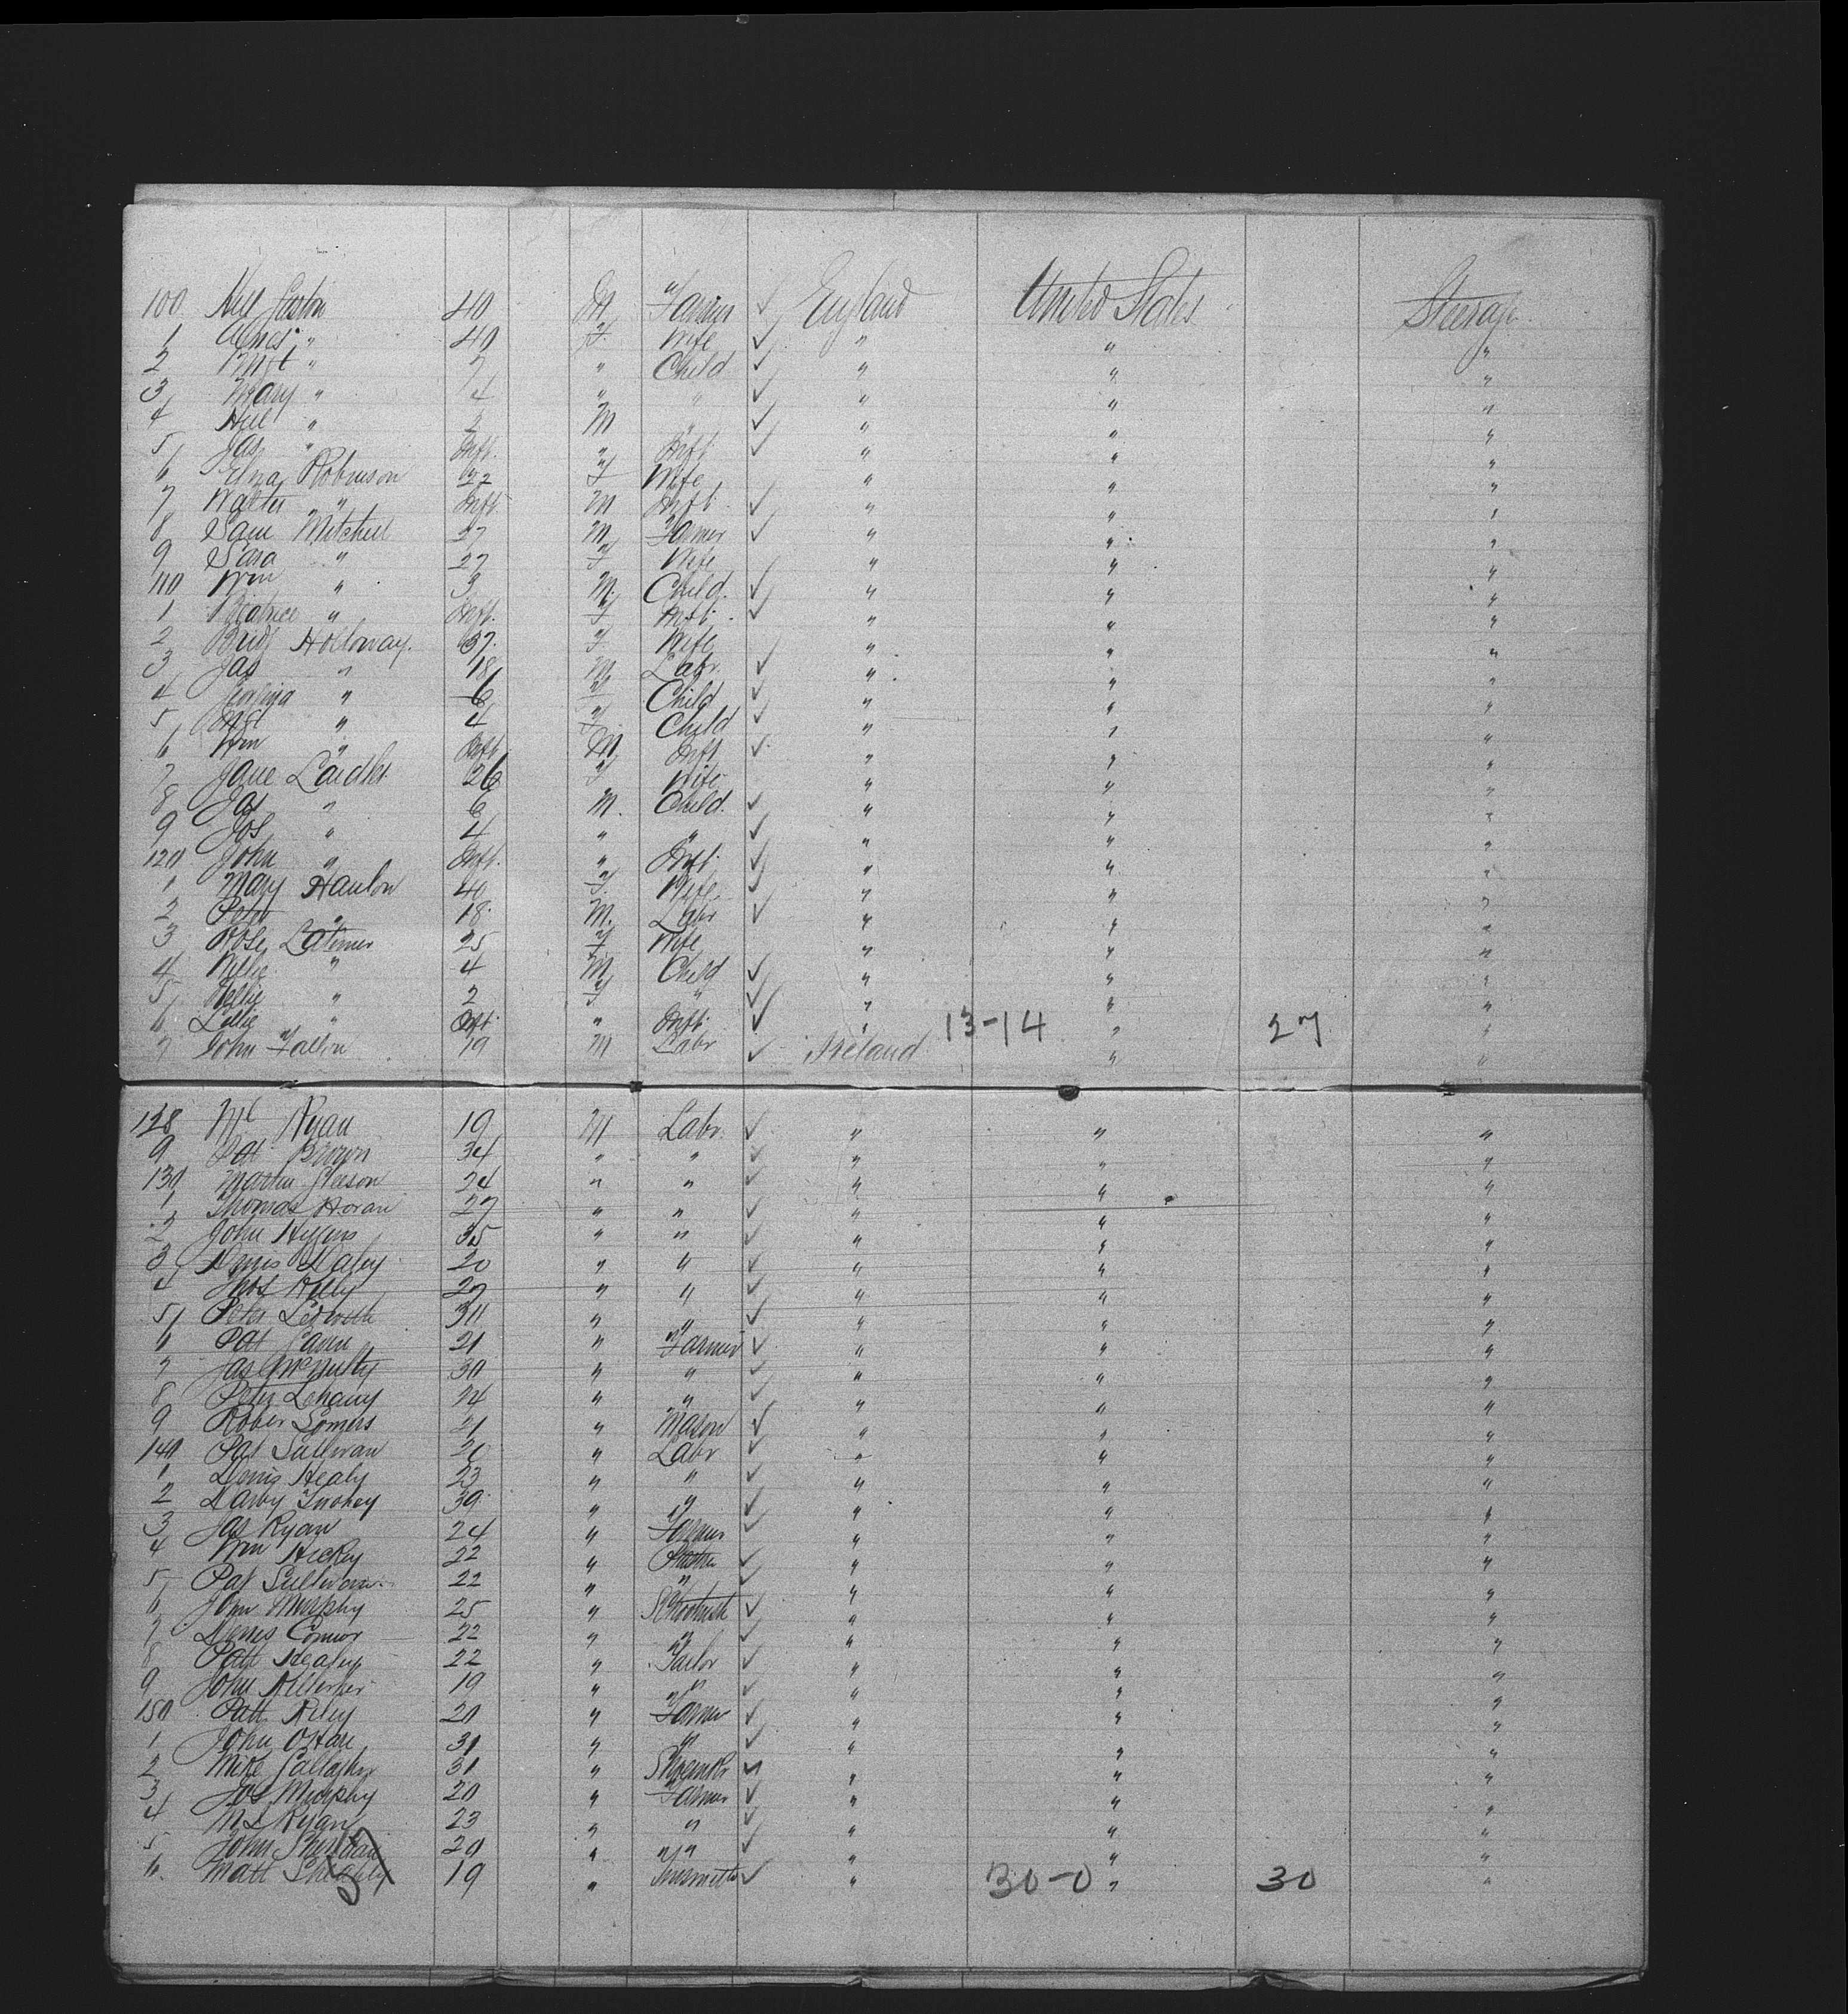 100 Hll Gaston 40 M Farmer ✓ England United States Steerage
1 Agnes " 40 F Wife ✓ " " "
2 Mgt " 7 " Child ✓ " " "
3 Mary " 4 " " ✓ " " "
4 Hll " M " ✓ " " "
5 Jas " Inft. " Inft ✓ " " "
6 Robinson 22 F Wife " " "
7 Walter " Inft. M Inft ✓ " " "
8 Sam Mitchell 27 M Farmer ✓ " " "
9 Sara " 27 F Wife " " "
110 Wm " 3 M. Child. ✓ " " "
1 Beatrice " Inft. F Inft. ✓ " " "
2 Bridg Holloway. 37. F Wife " " "
3 Jas " 18 M Labr ✓ " " "
4 Georgina " 6 F Child ✓ " " "
5 Mgt " 4 F. Child ✓ " " "
6 Wm " Inft M. Inft ✓ " " "
7 Jane Laidler 26 F Wife " " "
8 Jas " 6 M. Child. ✓ " " "
9 Jos " 4 " " ✓ " " "
120 John " Inft. " Inft. ✓ " " "
1 Mary Hanlon 40 F. Wife. ✓ " " "
2 Peter " 18. M. Labr ✓ " " "
3 Rose Latimer 25 F Wife " " "
4 Willie " 4 M Child ✓ " " "
5 Nellie " 2 F " ✓ " " "
6 Lillie " Inft. " Inft. ✓ " 13-14 " 27 "
7 John Fallon 19 M Labr ✓ Ireland " "
128 Ml Ryan 19 M Labr. ✓ " " "
9 Pat Brown 34 " " ✓ " " "
130 Martin Gleeson 24 " " ✓ " " "
1 Thomas Horan 27 " " ✓ " " "
2 John Higgins 35 " " ✓ " " "
3 Denis Daley 20 " " ✓ " " "
4 Thos Kelly 27 " " ✓ " " "
5 Peter Ledwith 30 " " ✓ " " "
6 Pat Gavin 21 " Farmer ✓ " " "
7 Jas McNulty 30 " " ✓ " " "
8 Peter Lehany 24 " " ✓ " " "
9 Rober Somers 21 " Mason ✓ " " "
140 Pat Sullivan 20 " Labr ✓ " " "
1 Denis Healy 23 " " ✓ " " "
2 Darby Tuohey 39 " " ✓ " " "
3 Jas Ryan 24 " Farmer ✓ " " "
4 Wm Hickey 22 " ✓ " " "
5 Pat Sullivan 22 " " ✓ " " "
6 John Murphy 25 " ✓ " " "
7 Denis Connor 22 " " ✓ " " "
8 Patt Healey 22 " Tailor ✓ " " "
9 John 19 " " ✓ " " "
150 Patt Riley 20 " Farmer ✓ " " "
1 John OHare 31 " " ✓ " " "
2 Mike Gallagher 31 " Shoemkr ✓ " " "
3 Jos Murphy 20 " Farmer ✓ " " "
4 Ml Ryan 23 " " ✓ " " "
5 John Sheridan 20 " " ✓ " " "
6. Matt 19 " Tinsmith ✓ " 30-0 " 30 "